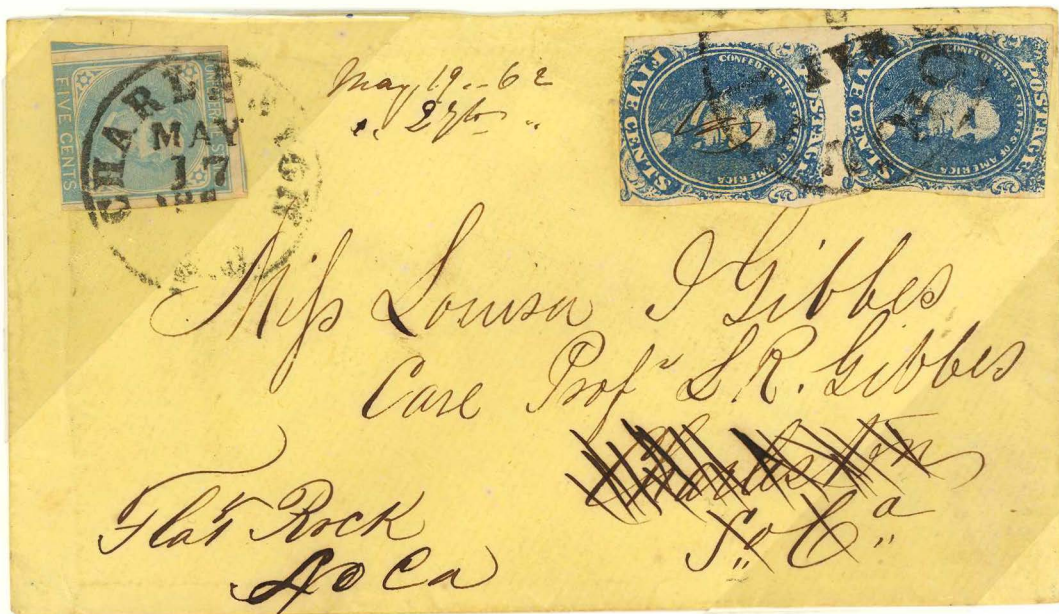 FIVE CENTS
CHARLESTON
MAY
17
May 19..62
" 27th "
FIVE CENTS
CONFEDERATE STATES OF AMERICA
POSTAGE
FIVE CENTS
CONFEDERATE STATES OF AMERICA
POSTAGE
MAY
Miss Louisa I Gibbes
Care Prof L R. Gibbes
Charleston
So Ca
Flat Rock
No Ca